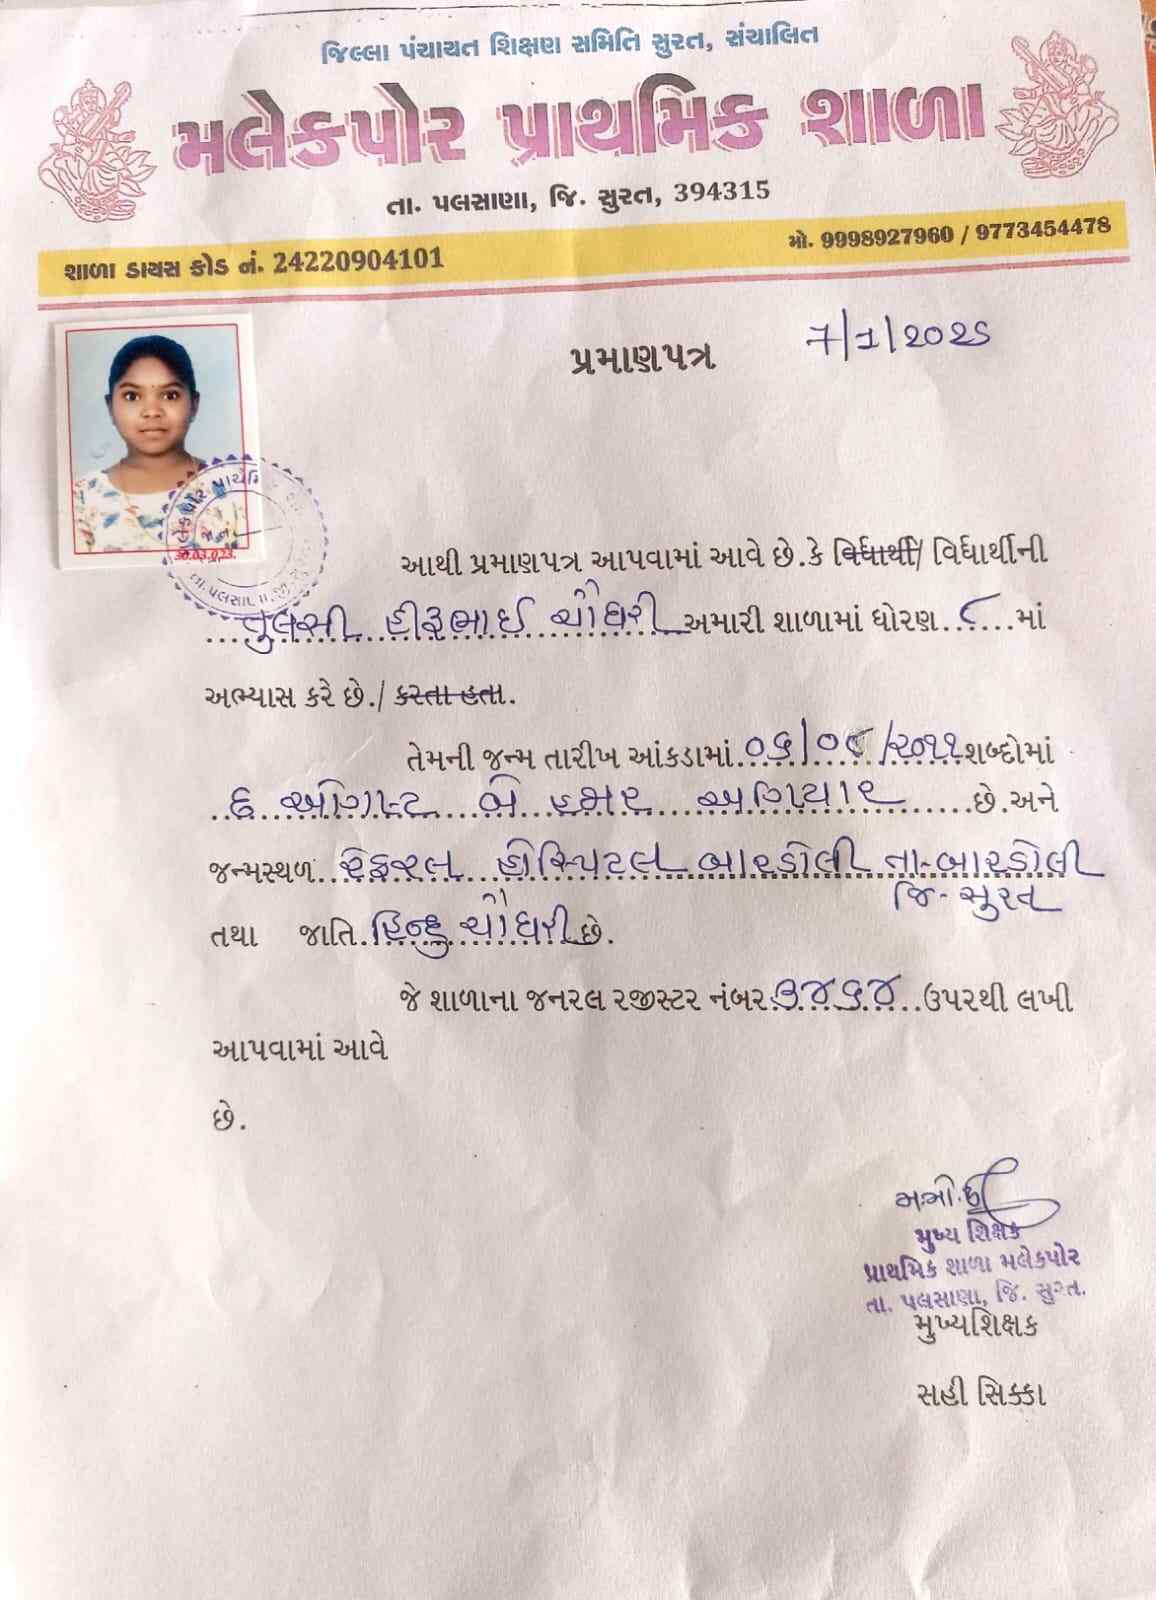 જિલ્લા પંચાયત શિક્ષણ સમિતિ સુરત, સંચાલિત
મલેકપોર પ્રાથમિક શાળા
તા. પલસાણા, જિ. સુરત, 394315
શાળા ડાયસ કોડ નં. 24220904101
મો. 9998927960 / 9773454478
7/1/2025
પ્રમાણપત્ર
30.03.023.
આથી પ્રમાણપત્ર આપવામાં આવે છે.કે વિર્ધાર્થી/ વિર્ધાર્થીની
તુલસી હીરૂભાઈ ચૌધરી અમારી શાળામાં ધોરણ ૮ માં
અભ્યાસ કરે છે./ કરતા હતા.
તેમની જન્મ તારીખ આંકડામાં ૦૬/૦૮/૨૦૧૧ શબ્દોમાં
છ ઓગિસ્ટ બે હજાર અગિયાર છે.અને
જન્મસ્થળ રેફરલ હોસ્પિટલ બારડોલી તા-બારડોલી
જિ- સુરત
તથા જાતિ હિન્દુ ચૌધરી છે.
જે શાળાના જનરલ રજીસ્ટર નંબર ૩૪૬૪ ઉપરથી લખી
આપવામાં આવે
છે.
મુખ્ય શિક્ષક
પ્રાથમિક શાળા મલેકપોર
તા. પલસાણા, જિ. સુરત.
મુખ્યશિક્ષક
સહી સિક્કા